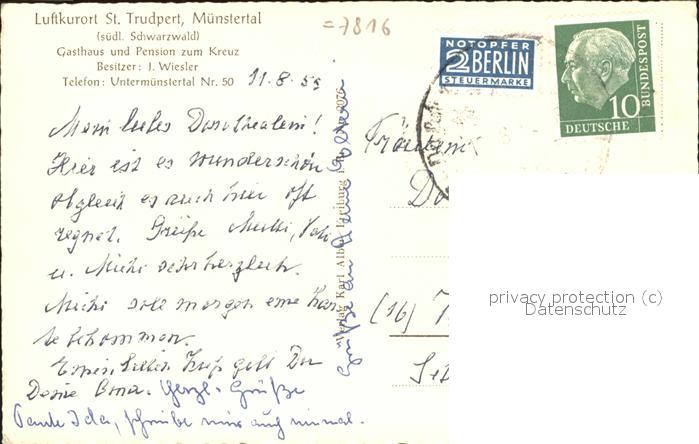 Luftkurort St. Trudpert, Münstertal
(südl. Schwarzwald)
Gasthaus und Pension zum Kreuz
Besitzer: J. Wiesler
Telefon: Untermünstertal Nr. 50
=7816
11.8.55
NOTOPFER
2 BERLIN
STEUERMARKE
10
DEUTSCHE
BUNDESPOST
Mein liebes Dorothealein!
Hier ist es wunderschön
obgleich es auch hier oft
regnet. Grüße Mutti, Vati
u. Michi sehr herzlich.
Michi soll morgen eine Kar
te bekommen.
Einen lieben Kuß gibt Dir
Deine Oma. Herzl. Grüße
Tante Ida, schreibe mir auch einmal.
Verlag Karl Alber Freiburg
Grüße an
Fräulein
Do
(16)
privacy protection (c)
Datenschutz